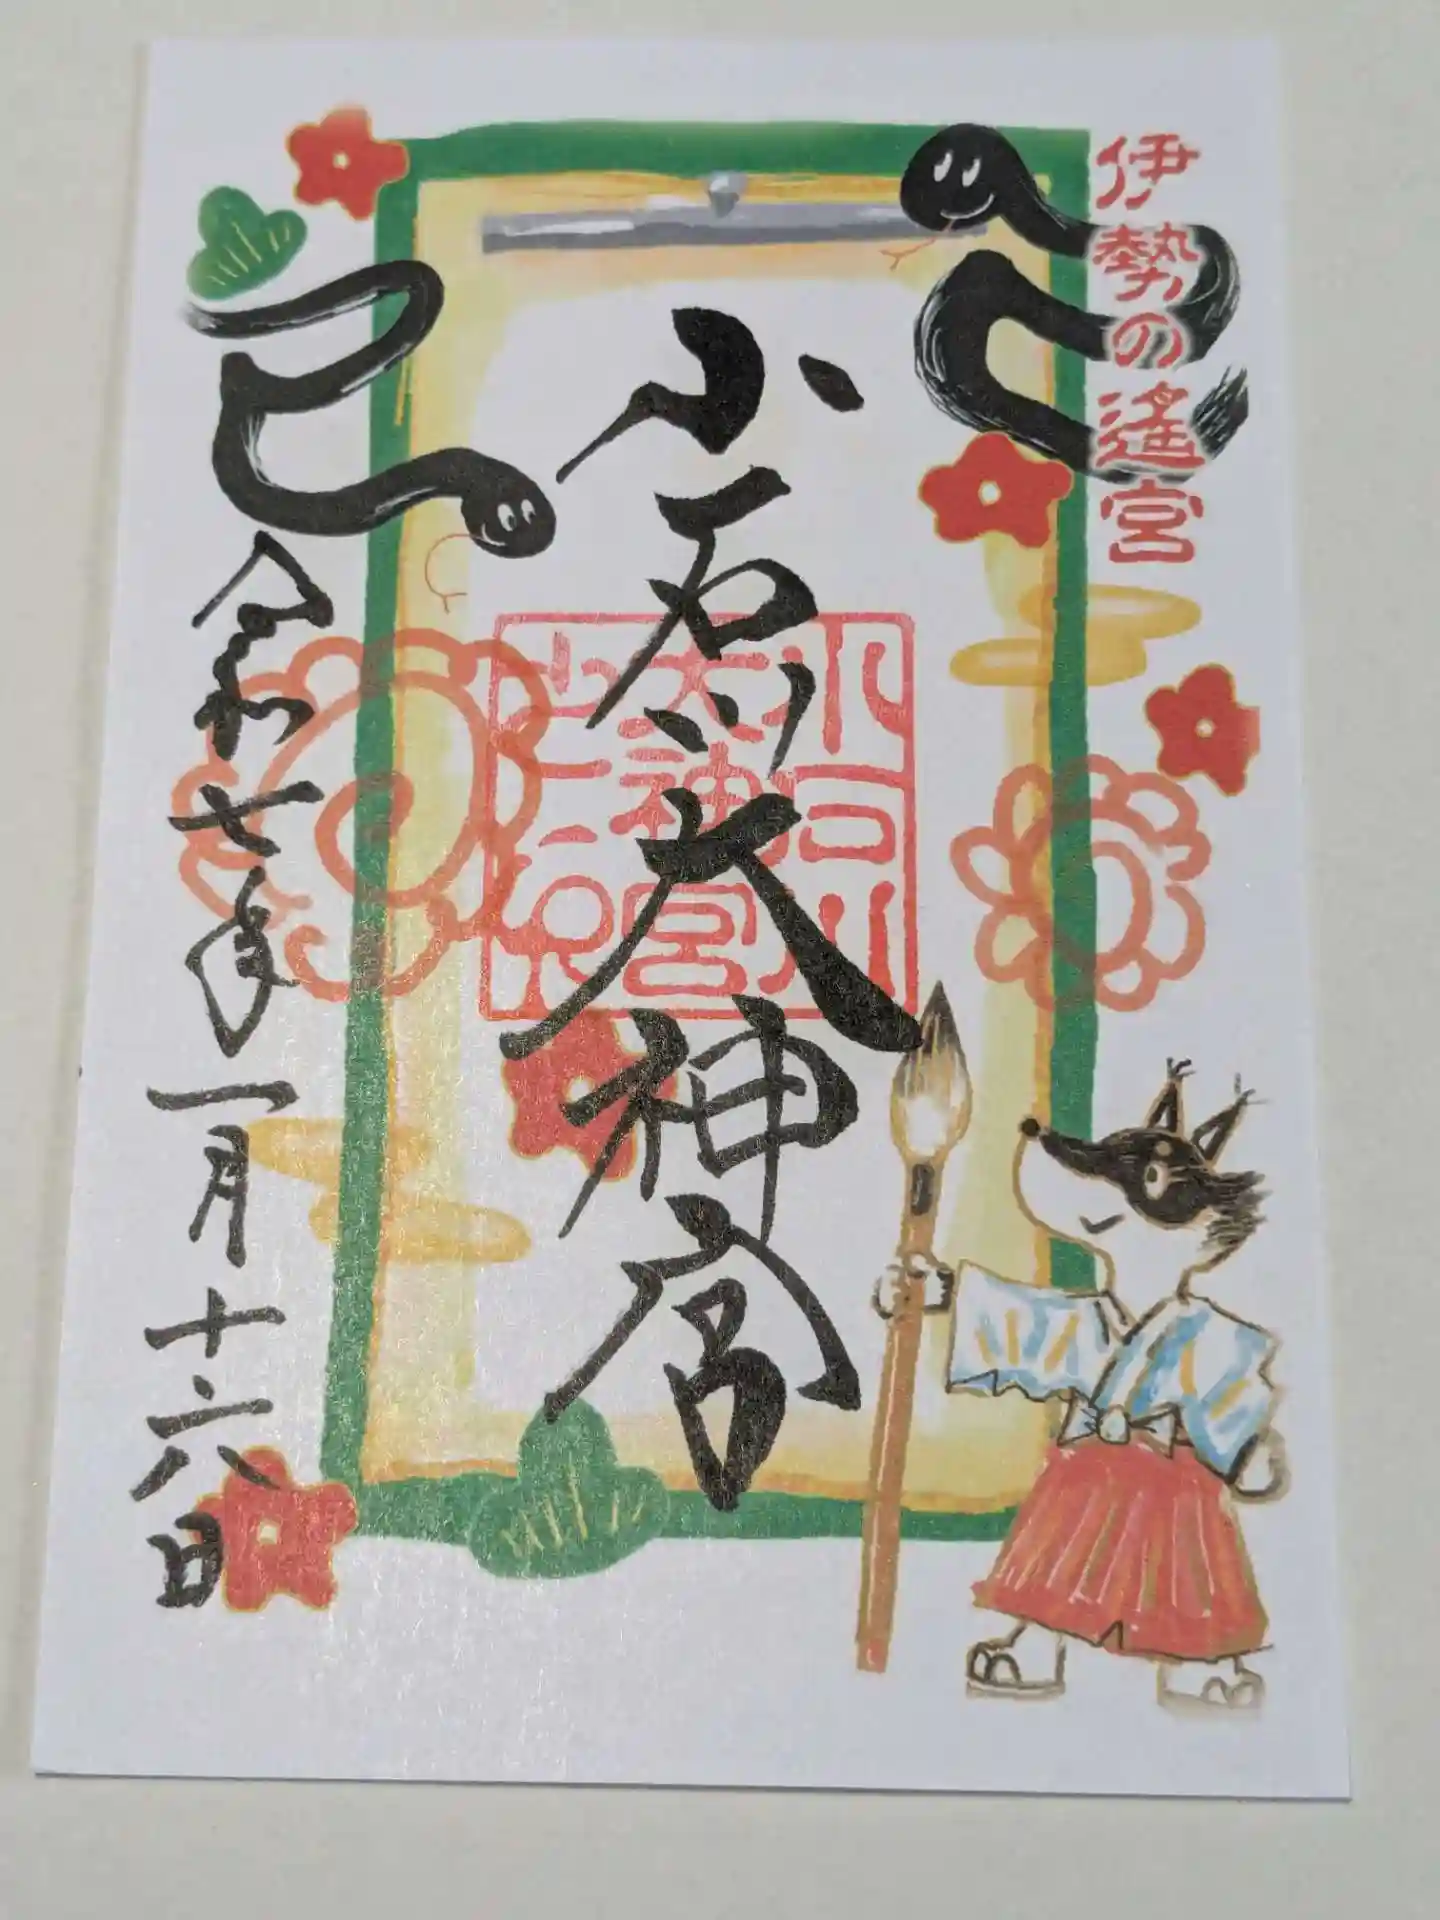 伊勢の遙宮
小石川大神宮
小石川
大神宮
之印
令和七年一月十六日